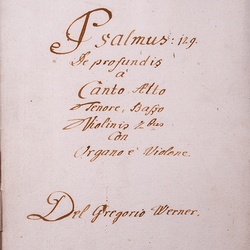 Psalmus: 129.
De profundis
à
Canto Alto
Tenore. Basso
Violinis 2 bus
Con
Organo è Violone.
Del Gregorio Werner.